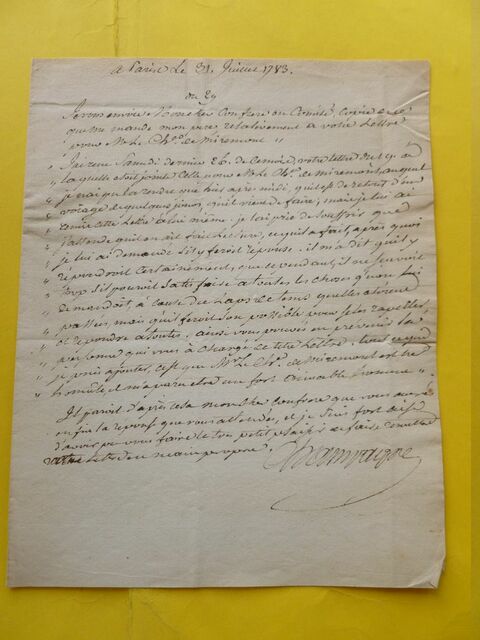 a Paris Le 31. Juillet 1783.
ou 29
Je vous envoie Mon cher Confrere en Comité, Copie de ce
que me mande mon pere, relativement a votre Lettre
pour M. Le Ch.er de Miremont "
" J'ai reçu Samedi dernier 26. de Ce mois, votre lettre du
" la quelle etoit jointe Celle pour M. Le Ch.er de Miremont, auquel
" je n'ai pu la rendre que hier après midi, qu'il est de retour d'un
" voyage de quelques jours, qu'il vient de faire, mais je lui ai
" remis cette Lettre a lui même. je l'ai prié de Souffrir que
" j'attende qu'il en eut fait Lecture, ce qu'il a fait, après quoi
" je lui ai demandé S'il y feroit reponse. il m'a dit qu'il y
" repondroit Certainement, que cependant, il ne Sauroit
" trop S'il pourroit Satisfaire a toutes les choses qu'on lui
" demandoit, à Cause du Laps de tems qu'elles etoient
" passées, mais qu'il feroit Son possible pour Se les rapeller
" et repondre a toutes. ainsi vous pouvés en prévenir la
" personne qui vous a Chargé de cette Lettre. tout ce que
" je puis ajouter, c'est que M. Le Ch.er de Miremont est tres
" honnête, et m'a paru etre un fort aimable homme "
Il paroit d'après cela mon cher Confrere que vous aurés
enfin la reponse que vous attendés, et je Suis fort aise
d'avoir pu vous faire le tres petit plaisir de faire remettre
votre Lettre en main propre.